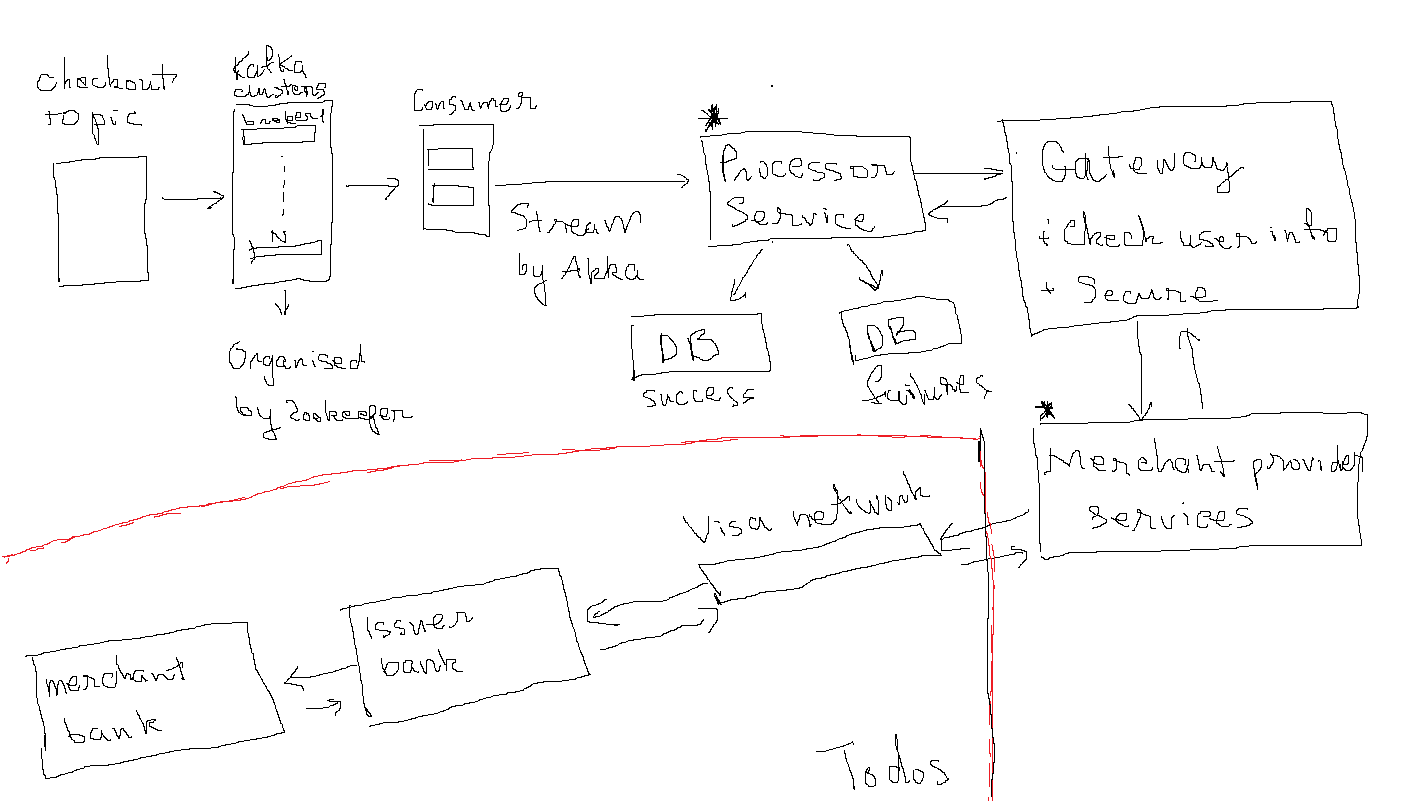 checkout
topic
Kafka
clusters
broker1
N
Organised
by Zookeefer
Consumer
Stream
by Akka
*
Processor
Service
DB
success
DB
failures
Gateway
+ Check user info
+ Secure
*
Merchant provider
services
Visa network
issuer
bank
merchant
bank
Todos